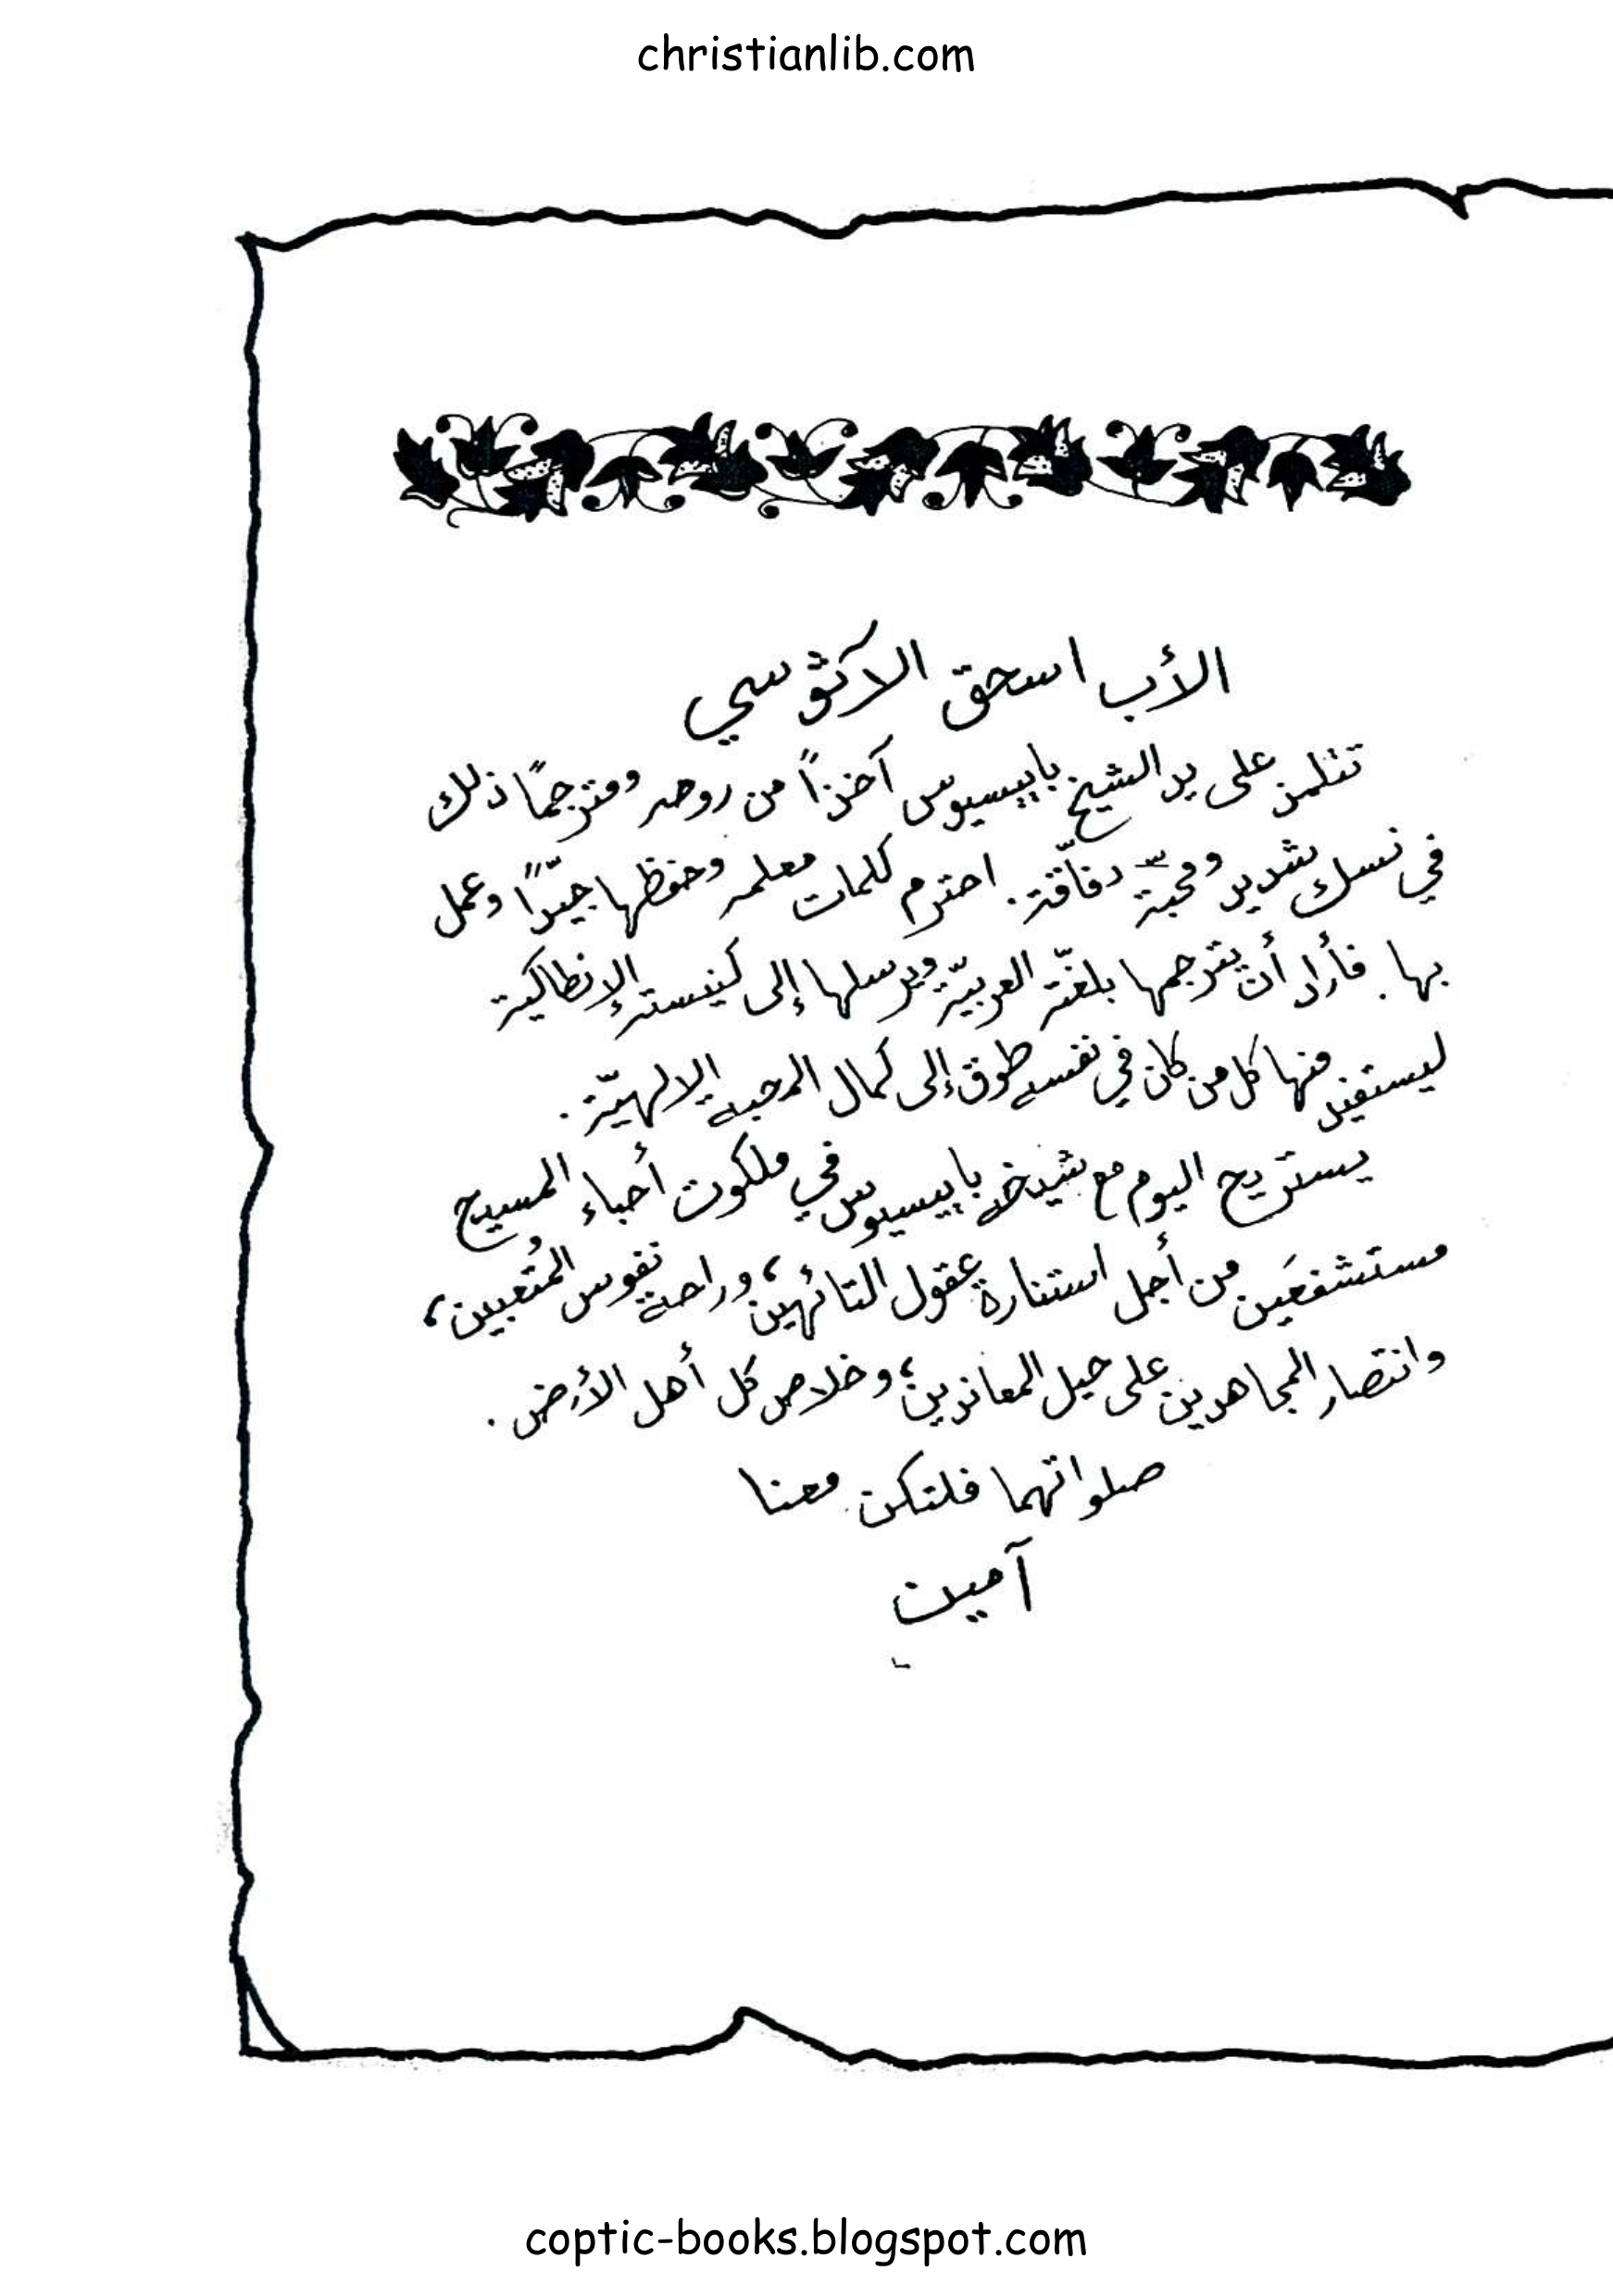 christianlib.com
الأب اسحق الآثوسي
تتلمذ على يد الشيخ باييسيوس آخذاً من روحه ومترجمًا ذلك
في نسك شديد ومحبّة دفاّقة. احترم كلمات معلمه وحفظها جيّدًا وعمل
بها. فأراد أن يترجمها بلغتّه العربيّة ويرسلها إلى كنيسته الإنطاكية
ليستفيد منها كل من كان في نفسه طوق إلى كمال المحبة الإلهيّة.
يستريح اليوم مع شيخه باييسيوس في ملكوت أحباء المسيح
مستشفعَين من أجل استنارة عقول التائهين، وراحة نفوس المُتعبين،
وانتصار المجاهدين على حيل المعاندين، وخلاص كل أهل الأرض.
صلواتهما فلتكن معنا
آمين
coptic-books.blogspot.com